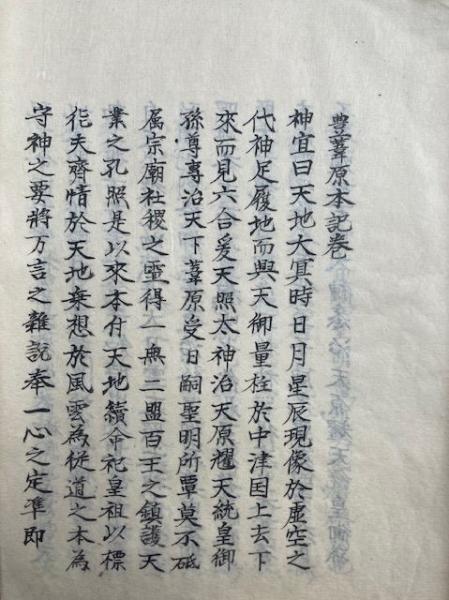 豊葦原本記巻
神宜曰天地大冥時日月星辰現像於虚空之
代神足履地而興天御量柱於中津国上去下
來而見六合爰天照太神治天原耀天統皇御
孫尊専治天下葦原受日嗣聖明所覃莫不砥
属宗廟社稷之霊得一無二盟百王之鎮護天
業之孔照是以來本付天地續命祀皇祖以標
化夫齊情於天地乗想於風雲為従道之本為
守神之要將万言之雜説奉一心之定準即